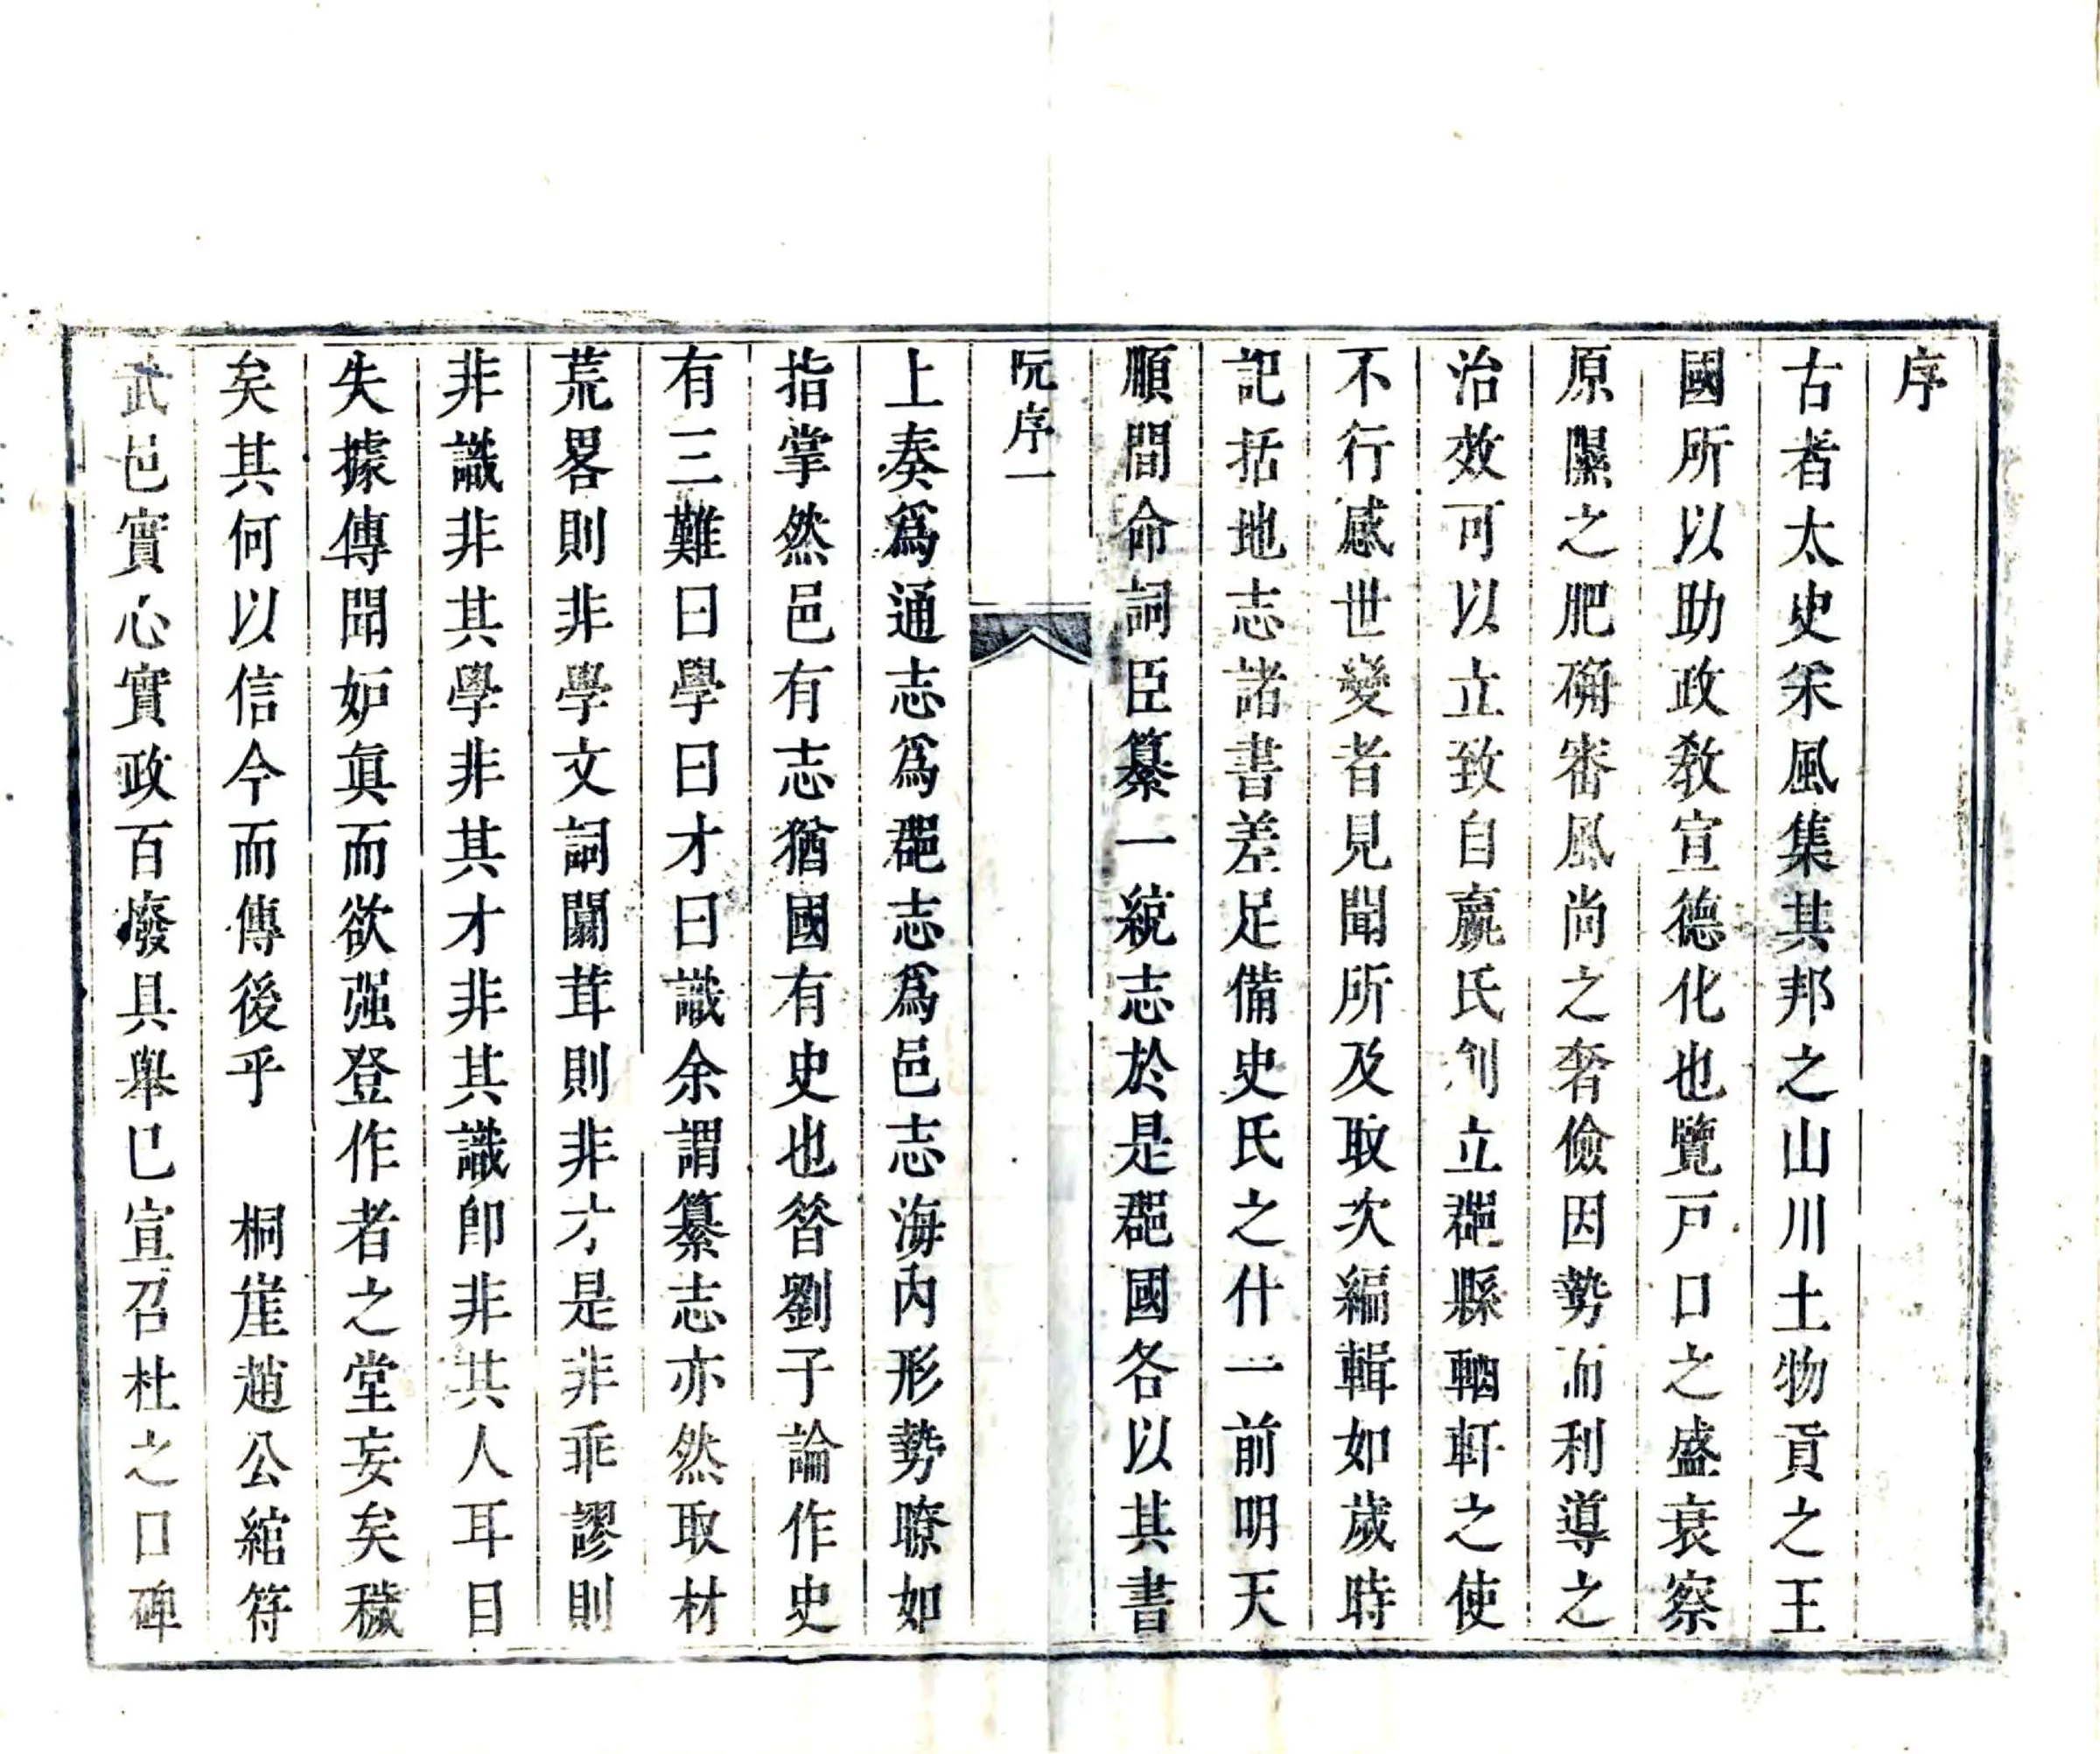 序
古者太史采風集其邦之山川土物貢之王
國所以助政敎宣德化也覽戸口之盛衰察
原隰之肥磽審風尚之奢儉因勢而利導之
治效可以立致自嬴氏剏立郡縣輶軒之使
不行感世變者見聞所及取次編輯如歲時
記括地志諸書差足備史氏之什一前明天
順間命詞臣纂一統志於是郡國各以其書
阮序一
上奏爲通志爲郡志爲邑志海內形勢瞭如
指掌然邑有志猶國有史也昝劉子論作史
有三難曰學曰才曰識余謂纂志亦然取材
荒畧則非學文詞闒茸則非才是非乖謬則
非識非其學非其才非其識卽非其人耳目
失據傳聞妒眞而欲强登作者之堂妄矣穢
矣其何以信今而傳後乎　桐崖趙公綰符
武邑實心實政百廢具舉已宣召杜之口碑